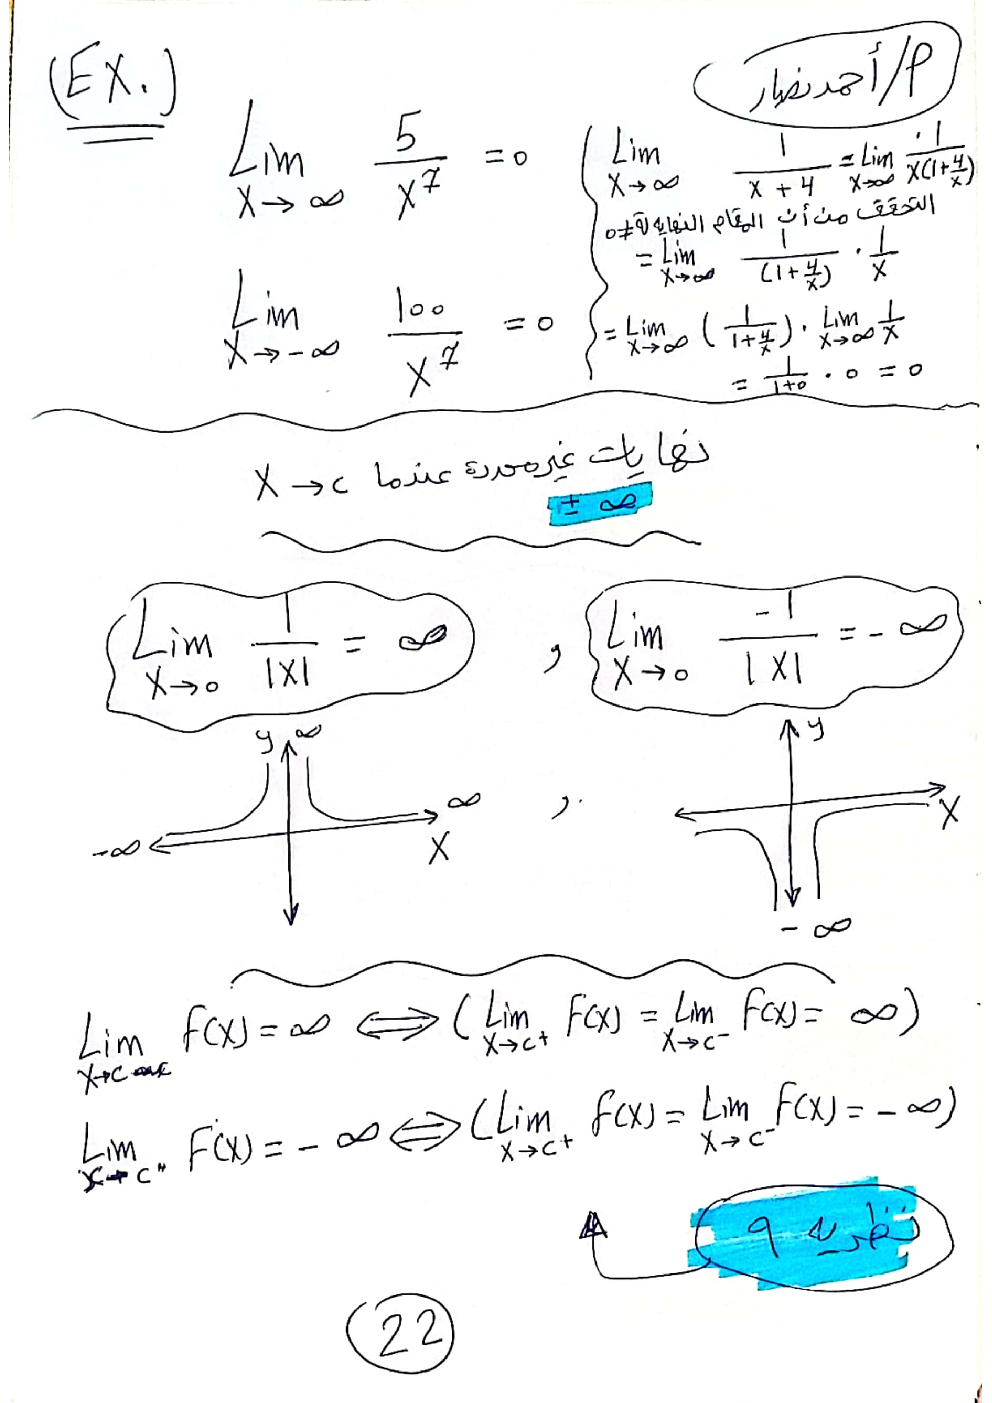 (EX.)
م/أحمد نصار
Lim x→∞ 5/x^7 = 0
Lim x→-∞ 100/x^7 = 0
Lim x→∞ 1/(x+4) = Lim x→∞ 1/(x(1+4/x))
التحقق من أن المقام النهاية له ≠ 0
= Lim x→∞ 1/(1+4/x) · 1/x
= Lim x→∞ (1/(1+4/x)) · Lim x→∞ 1/x
= 1/(1+0) · 0 = 0
نهايات غير محددة عندما x→c
± ∞
Lim x→0 1/|x| = ∞ , Lim x→0 -1/|x| = -∞
y ∞
-∞ ∞ x
,
y
x
-∞
Lim x→c f(x) = ∞ ⟺ (Lim x→c+ f(x) = Lim x→c- f(x) = ∞)
Lim x→c f(x) = -∞ ⟺ (Lim x→c+ f(x) = Lim x→c- f(x) = -∞)
نظرية ٩
22